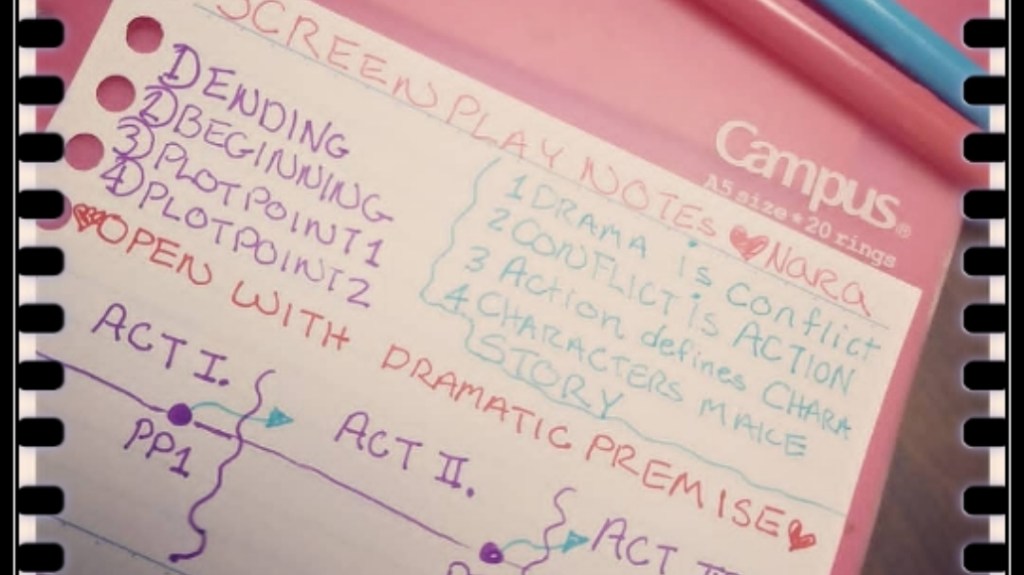 SCREENPLAY NOTES ❤ Nara
1) ENDING
2) BEGINNING
3) PLOTPOINT1
4) PLOTPOINT2
1 DRAMA is Conflict
2 CONFLICT is ACTION
3 Action defines CHARA
4. CHARACTERS MAKE
STORY
❤OPEN WITH DRAMATIC PREMISE❤
ACT I.
PP1
ACT II.
ACT
Campus®
A5 size * 20 rings